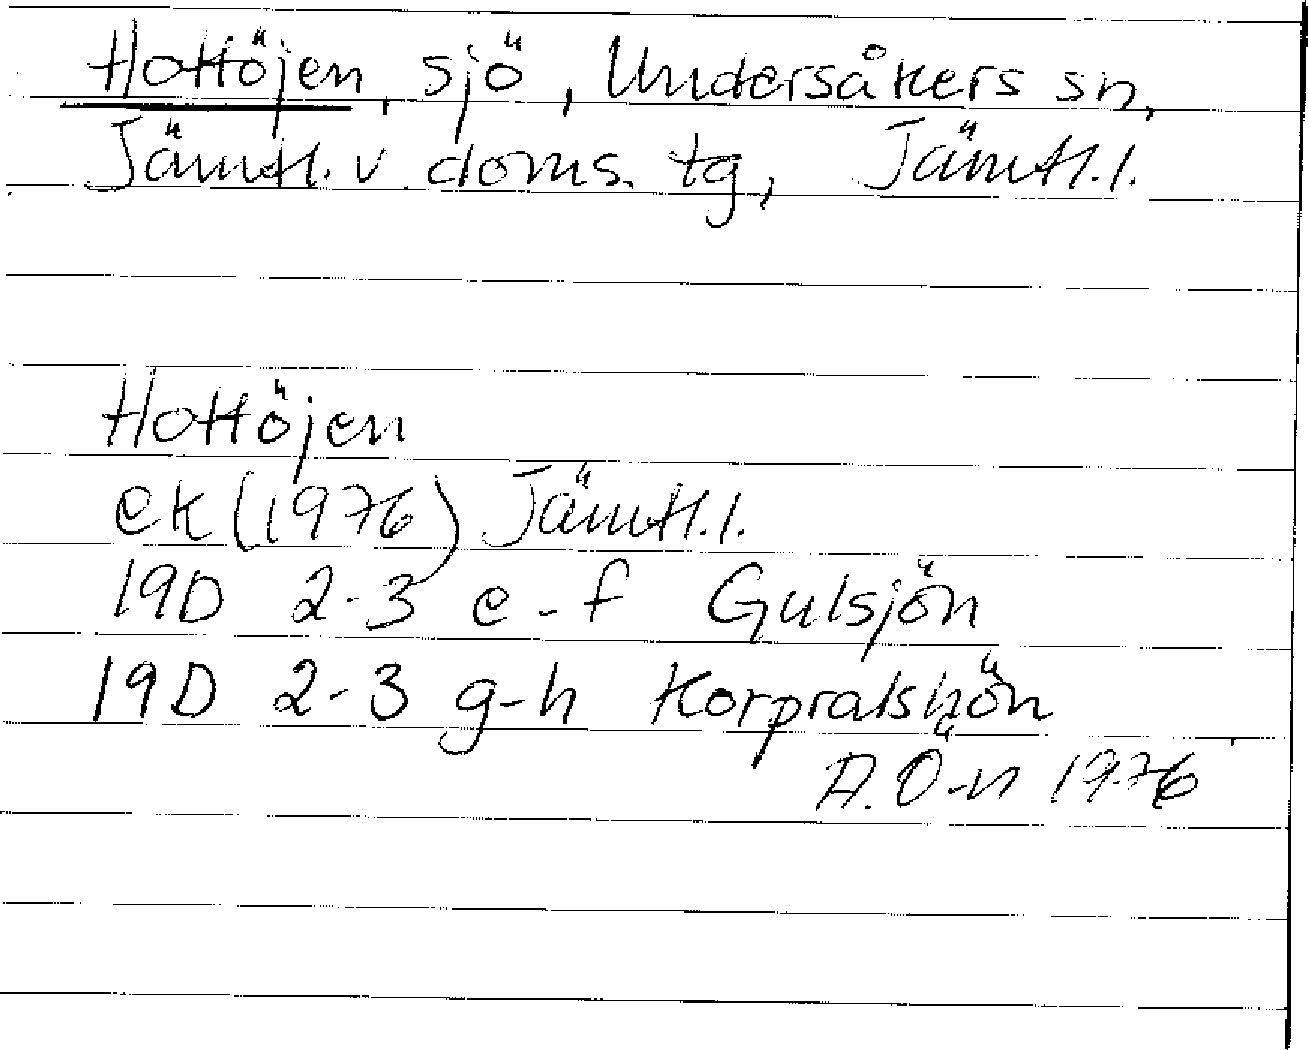 Hottöjen, sjö, Undersåkers sn,
Jämtl. v. doms. tg, Jämtl. l.
Hottöjen
ek (1976) Jämtl. l.
19D 2-3 e-f Gulsjön
19D 2-3 g-h Korpralshön
A. Ö-n 1976